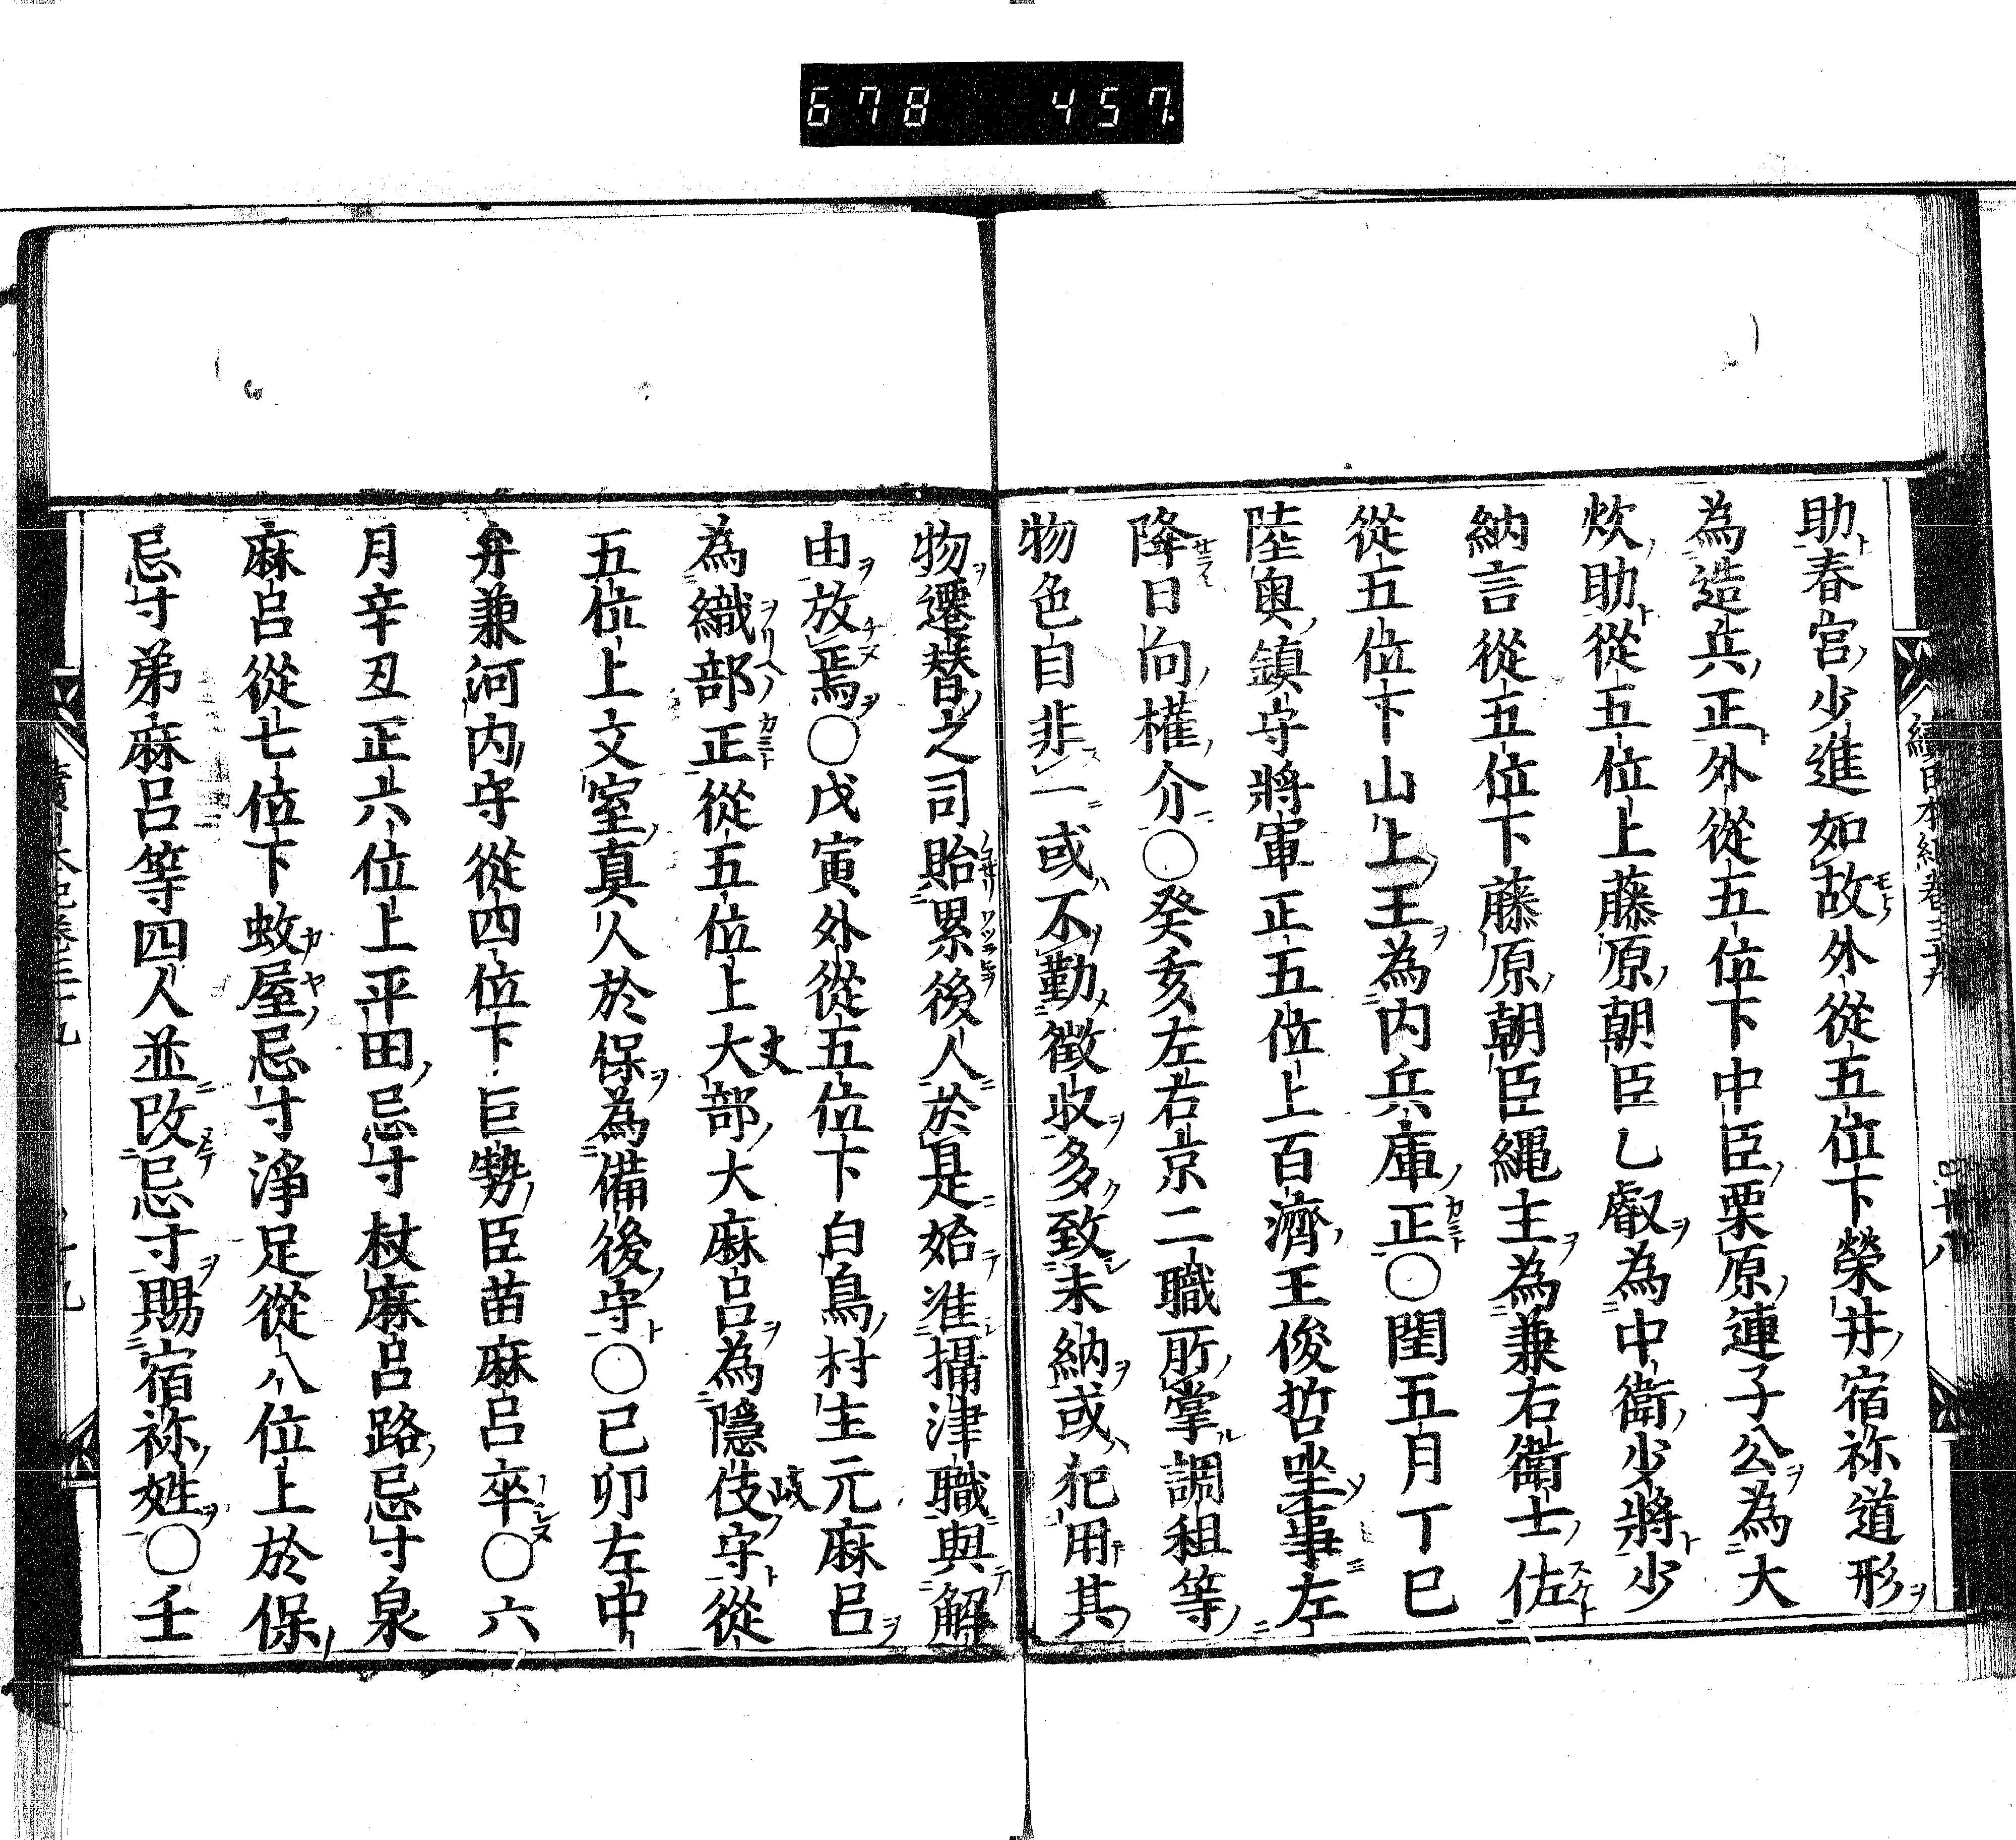 678 457
續日本紀卷三十九
助春宮少進如故外從五位下榮井宿祢道形
為造兵正外從五位下中臣栗原連子公為大
炊助從五位上藤原朝臣乙叡為中衛少將少
納言從五位下藤原朝臣縄主為兼右衛士佐
從五位下山上王為内兵庫正〇閏五月丁巳
陸奥鎮守將軍正五位上百濟王俊哲坐事左
降日向權介〇癸亥左右京二職所掌調租等
物色自非一或不勤徴收多致未納或犯用其
物遷替之司貽累後人於是始准攝津職與解
由放焉〇戊寅外從五位下白鳥村主元麻呂
為織部正從五位上大部大麻呂為隱伎守從
丈
岐
五位上文室真人於保為備後守〇己卯左中
弁兼河内守從四位下巨勢臣苗麻呂卒〇六
月辛丑正六位上平田忌寸杖麻呂路忌寸泉
麻呂從七位下蚊屋忌寸淨足從八位上於保
忌寸弟麻呂等四人並改忌寸賜宿祢姓〇壬